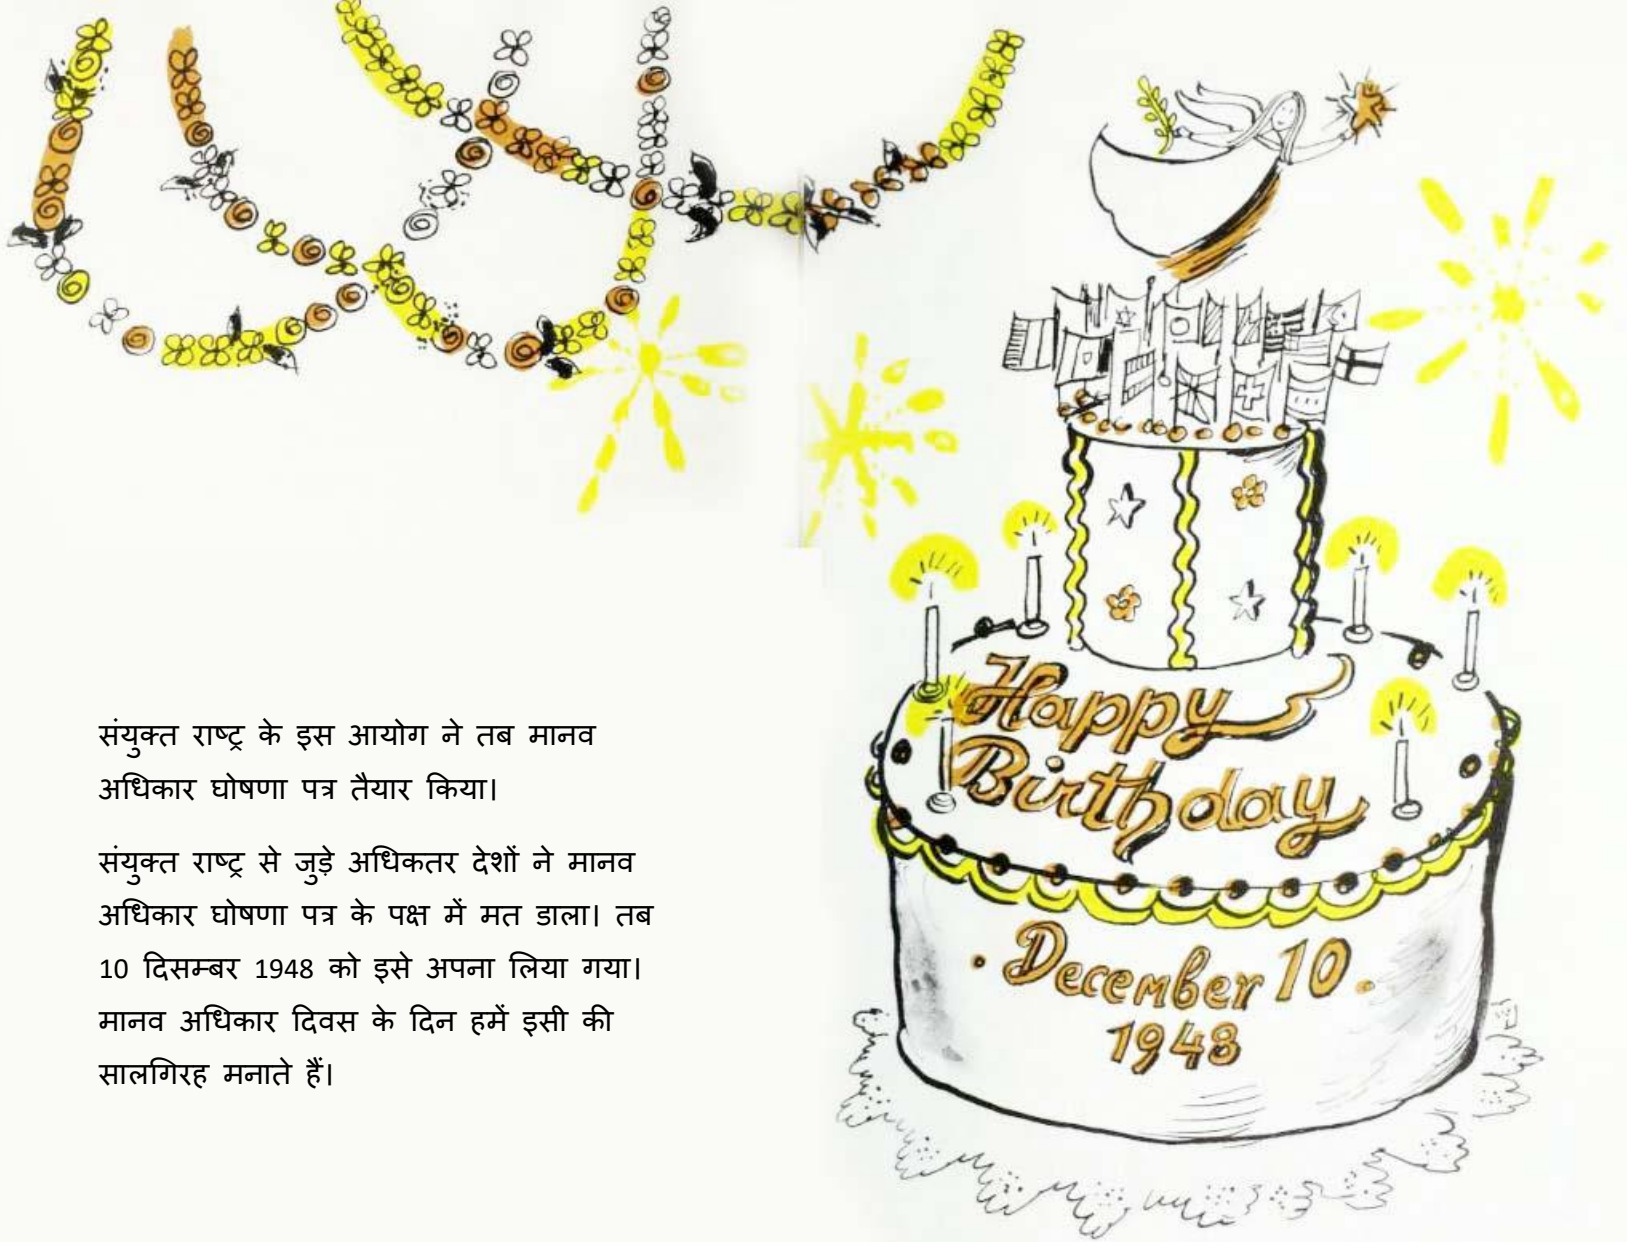 संयुक्त राष्ट्र के इस आयोग ने तब मानव
अधिकार घोषणा पत्र तैयार किया।
संयुक्त राष्ट्र से जुड़े अधिकतर देशों ने मानव
अधिकार घोषणा पत्र के पक्ष में मत डाला। तब
10 दिसम्बर 1948 को इसे अपना लिया गया।
मानव अधिकार दिवस के दिन हमें इसी की
सालगिरह मनाते हैं।
Happy
Birthday
December 10
1948